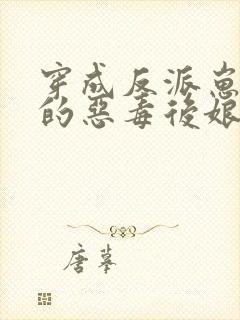 穿成反派崽
的惡毒後娘
唐摹